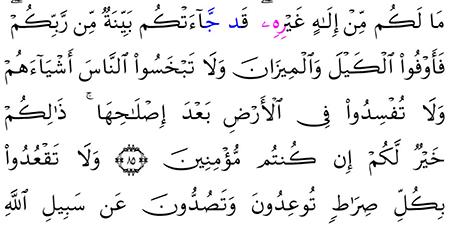 مَا لَكُم مِّنْ إِلَـٰهٍ غَيْرُهُۥ ۖ قَدْ جَآءَتْكُم بَيِّنَةٌ مِّن رَّبِّكُمْ ۖ
فَأَوْفُوا۟ ٱلْكَيْلَ وَٱلْمِيزَانَ وَلَا تَبْخَسُوا۟ ٱلنَّاسَ أَشْيَآءَهُمْ
وَلَا تُفْسِدُوا۟ فِى ٱلْأَرْضِ بَعْدَ إِصْلَـٰحِهَا ۚ ذَٰلِكُمْ
خَيْرٌ لَّكُمْ إِن كُنتُم مُّؤْمِنِينَ ۝٨٥ وَلَا تَقْعُدُوا۟
بِكُلِّ صِرَٰطٍ تُوعِدُونَ وَتَصُدُّونَ عَن سَبِيلِ ٱللَّهِ